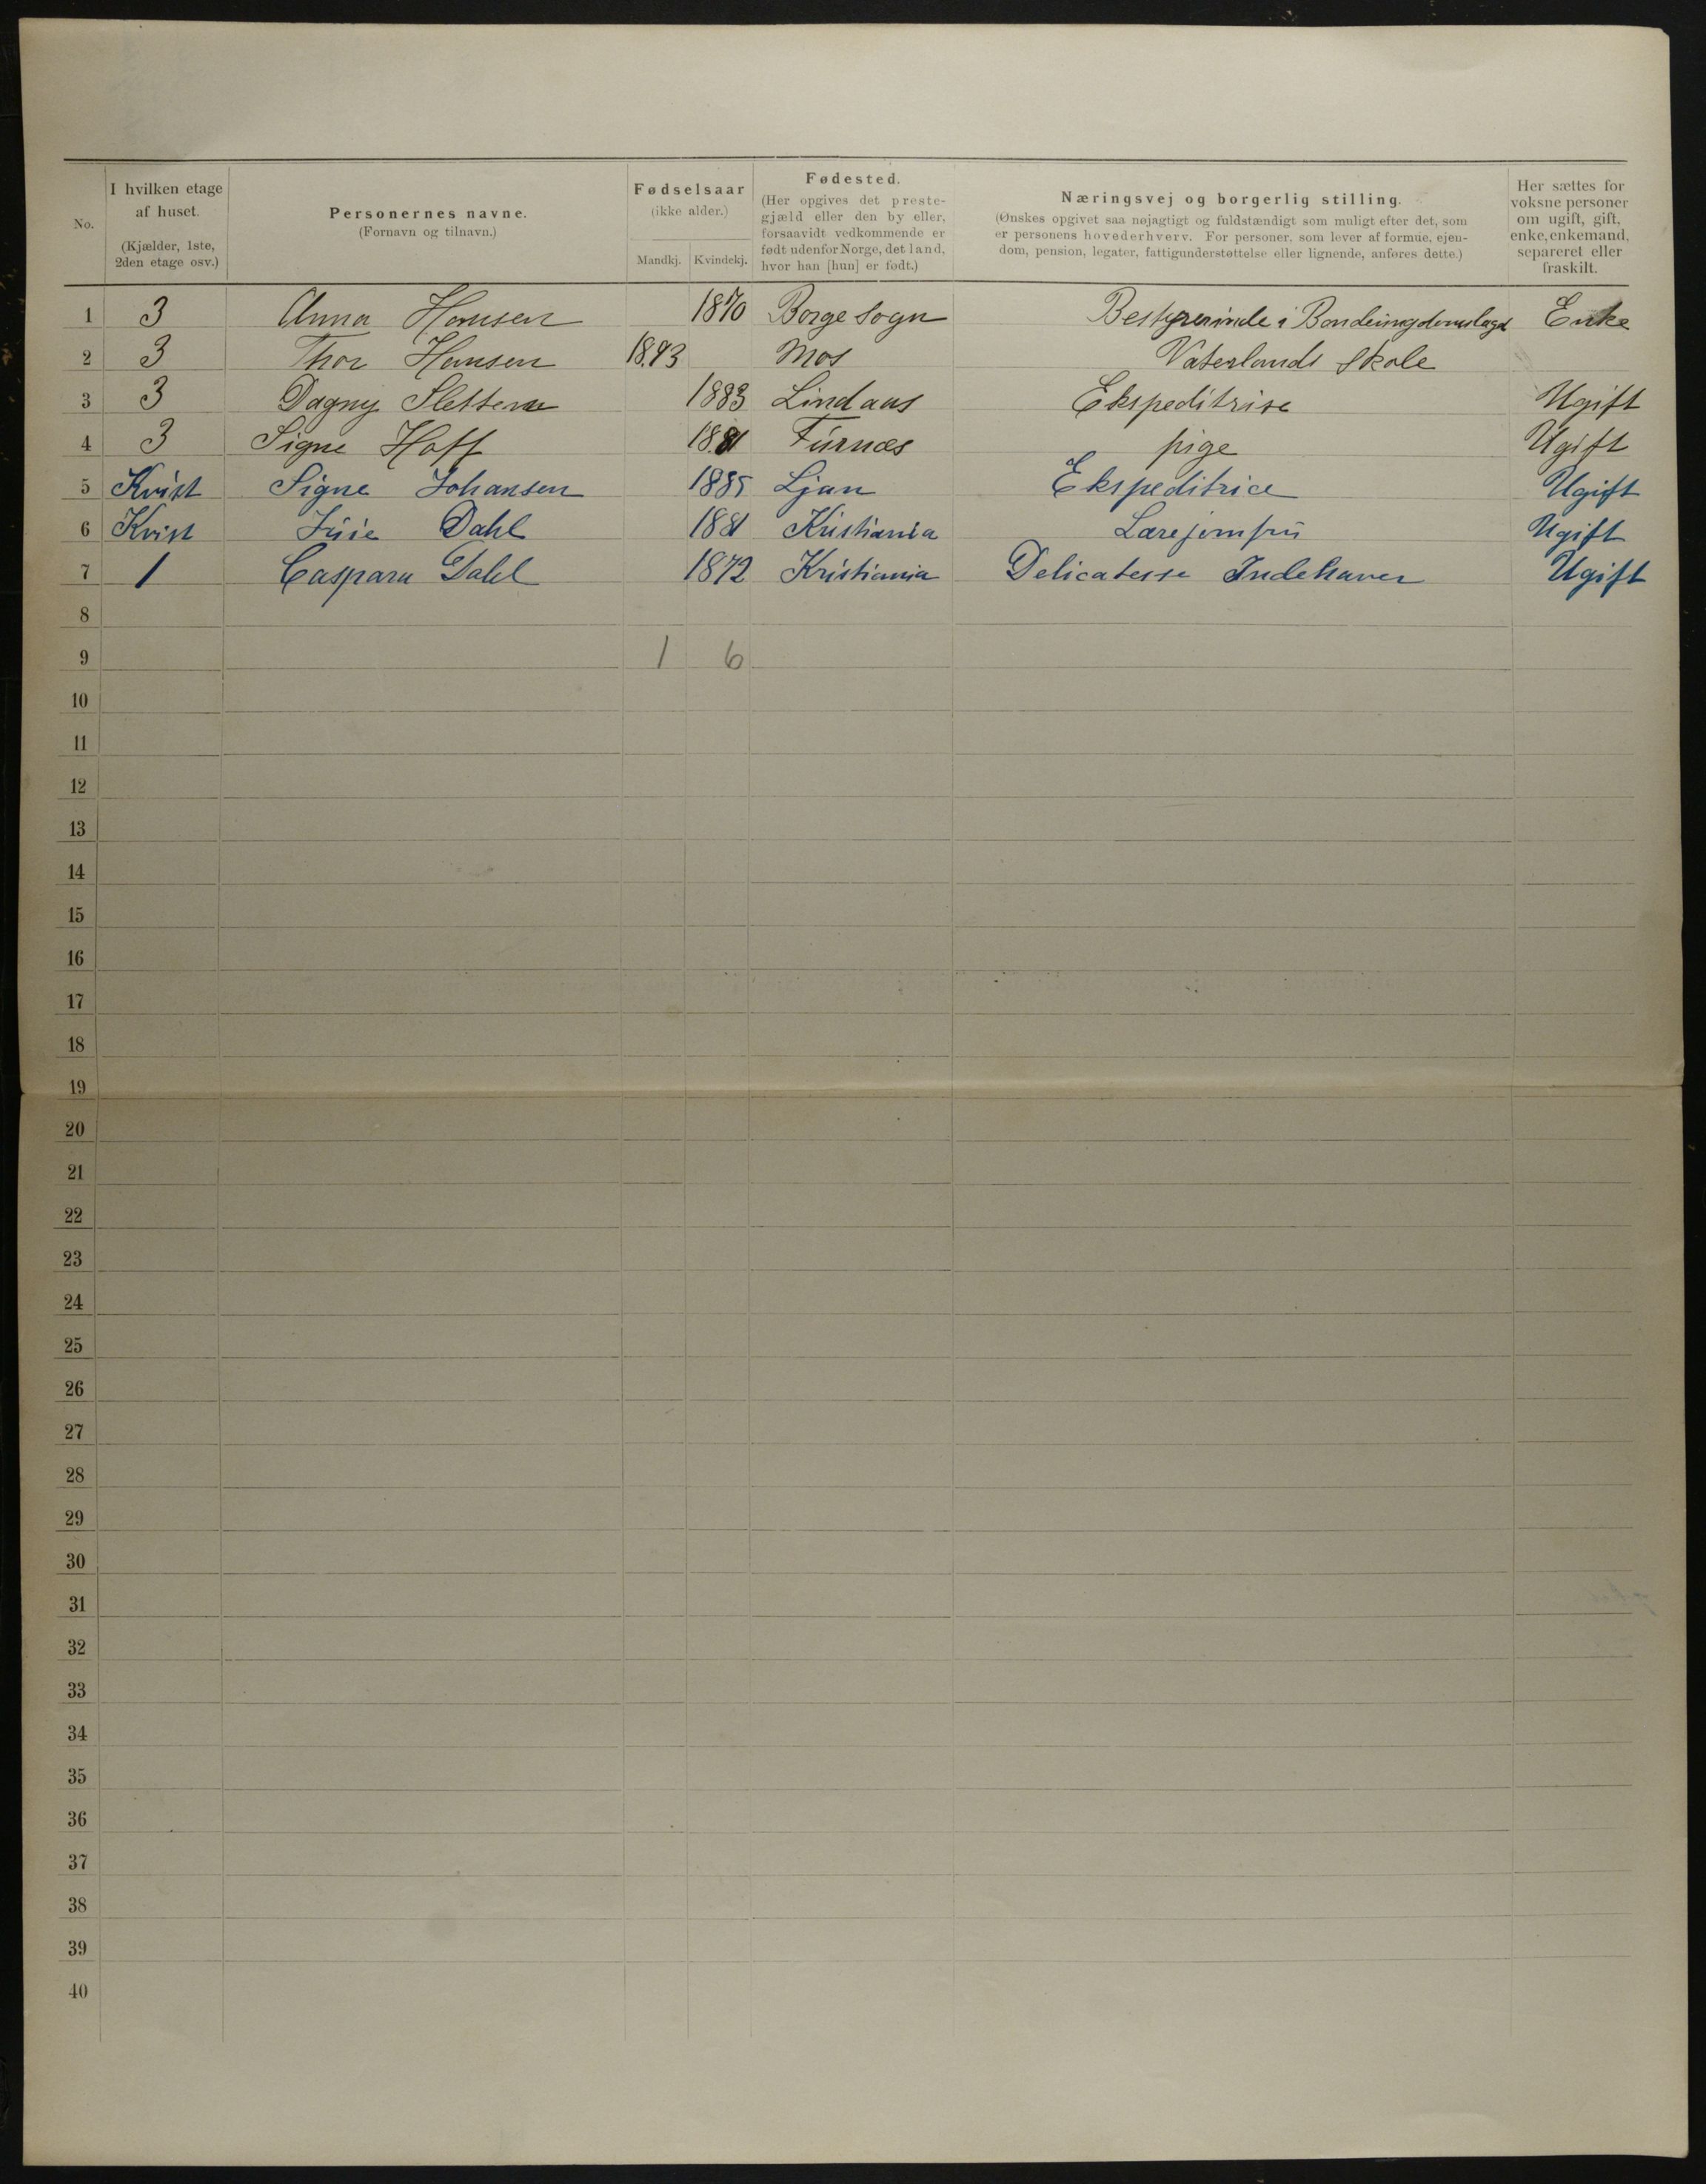 No.
I hvilken etage af huset. (Kjælder, 1ste, 2den etage osv.)
Personernes navne. (Fornavn og tilnavn.)
Fødselsaar (ikke alder.)
Mandkj. Kvindekj.
Fødested. (Her opgives det prestegjæld eller den by eller, forsaavidt vedkommende er født udenfor Norge, det land, hvor han [hun] er født.)
Næringsvej og borgerlig stilling.
(Ønskes opgivet saa nøjagtigt og fuldstændigt som muligt efter det, som er personens hovederhverv. For personer, som lever af formue, ejendom, pension, legater, fattigunderstøttelse eller lignende, anføres dette.)
Her sættes for voksne personer om ugift, gift, enke, enkemand, separeret eller fraskilt.
1 3 Anna Hansen 1870 Borge Sogn Bestyrerinde i Enke
2 3 Thor Hansen 1893 Mos Vaterlands Skole
3 3 Dagny 1883 Lindaas Ekspeditrise Ugift
4 3 Signe Hoff 1881 Furnæs pige Ugift
5 Kvist Signe Johansen 1885 Ljan Ekspeditrice Ugift
6 Kvist Dahl 1881 Kristiania Lærejomfru Ugift
7 1 Caspara Dahl 1872 Kristiania Delicatesse Indehaver Ugift
8
9 1 6
10
11
12
13
14
15
16
17
18
19
20
21
22
23
24
25
26
27
28
29
30
31
32
33
34
35
36
37
38
39
40